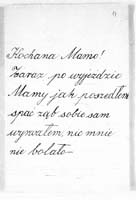 Kochana Mamo!
Zaraz po wyjeździe
Mamy jak poszedłem
spać ząb sobie sam
wyrwałem, nic mnie
nie bolało –